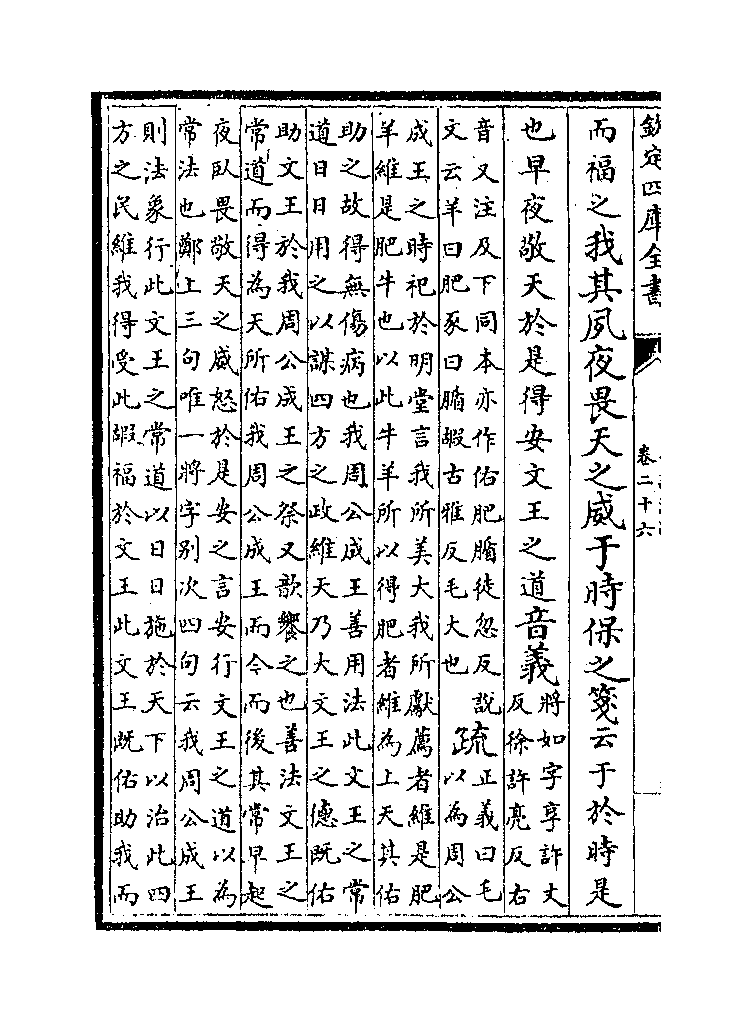 欽定四庫全書
卷二十六
而福之我其夙夜畏天之威于時保之箋云于於時是
也早夜敬天於是得安文王之道音義將如字享許丈
反徐許亮反右
音又注及下同本亦作佑肥腯徒忽反說
文云羊曰肥豕曰腯嘏古雅反毛大也
疏正義曰毛
以為周公
成王之時祀於明堂言我所美大我所獻薦者維是肥
羊維是肥牛也以此牛羊所以得肥者維為上天其佑
助之故得無傷病也我周公成王善用法此文王之常
道日日用之以謀四方之政維天乃大文王之德既佑
助文王於我周公成王之祭又歆饗之也善法文王之
常道而得為天所佑我周公成王而今而後其常早起
夜臥畏敬天之威怒於是安之言安行文王之道以為
常法也鄭上三句唯一將字别次四句云我周公成王
則法象行此文王之常道以日日施於天下以治此四
方之民維我得受此嘏福於文王此文王既佑助我而